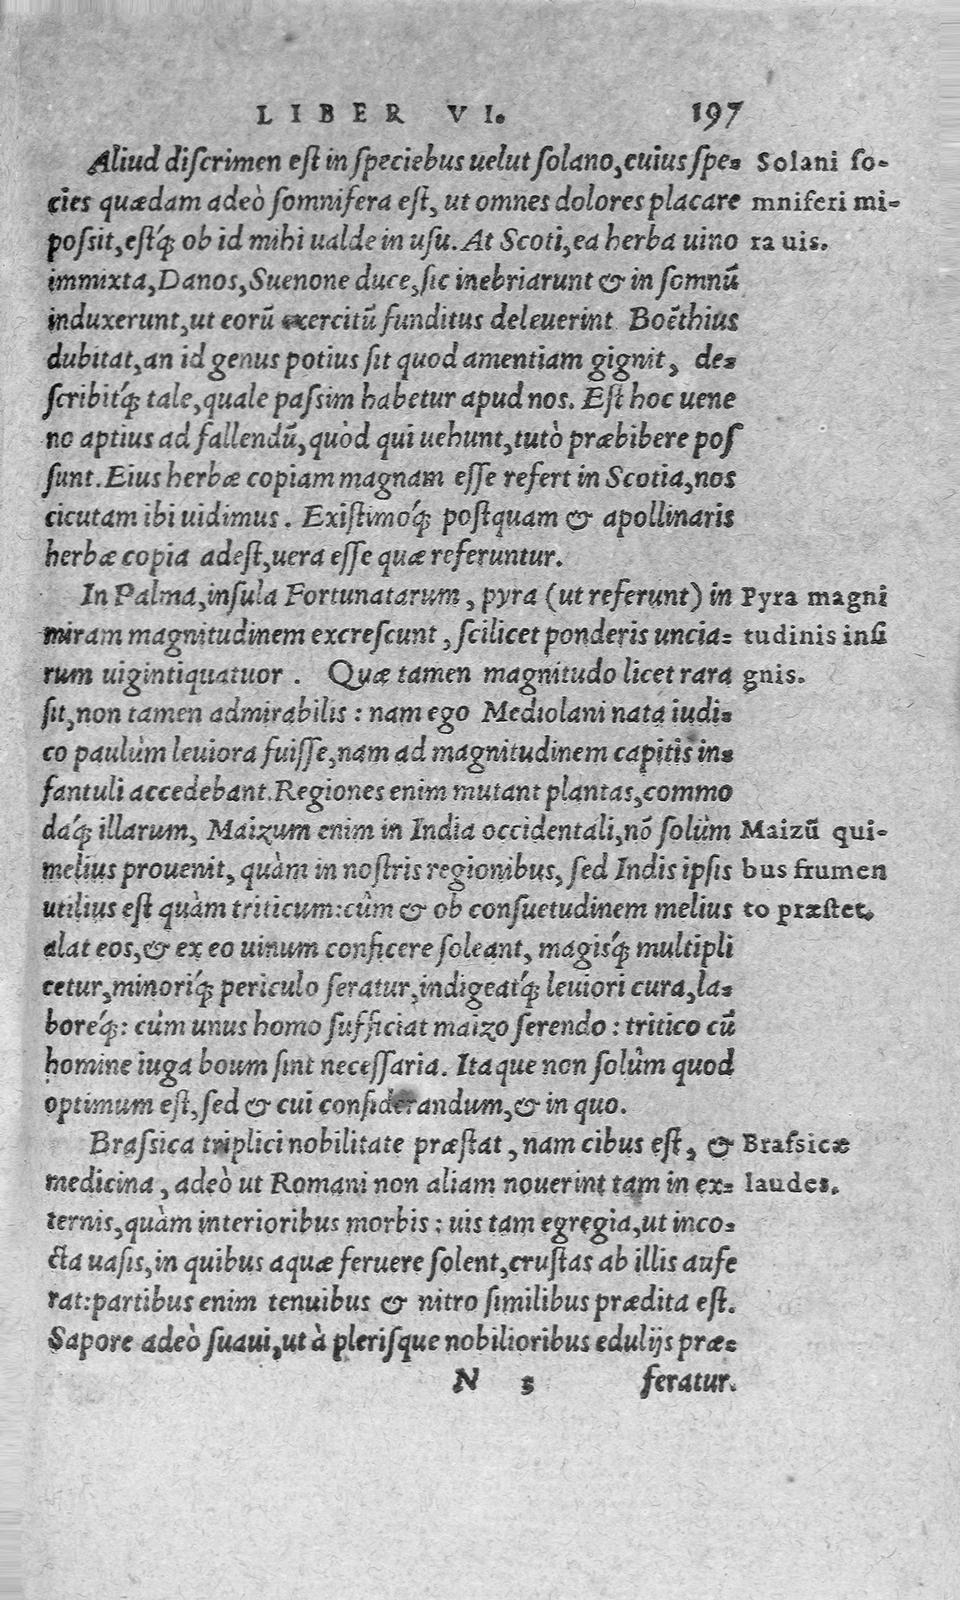 LIBER VI. 197
Aliud diſcrimen eſt in ſpeciebus uelut ſolano, cuius ſpe-
cies quædam adeò ſomnifera eſt, ut omnes dolores placare
poſsit, eſtq́; ob id mihi ualde in uſu. At Scoti, ea herba uino
immixta, Danos, Suenone duce, ſic inebriarunt & in ſomnū
induxerunt, ut eorū exercitū funditus deleuerint Boëthius
dubitat, an id genus potius ſit quod amentiam gignit, de-
ſcribitq́; tale, quale paſsim habetur apud nos. Eſt hoc uene
no aptius ad fallendū, quòd qui uehunt, tutò præbibere poſ
ſunt. Eius herbæ copiam magnam eſſe refert in Scotia, nos
cicutam ibi uidimus. Exiſtimoq́; poſtquam & apollinaris
herbæ copia adeſt, uera eſſe quæ referuntur.
In Palma, inſula Fortunatarum, pyra (ut referunt) in
miram magnitudinem excreſcunt, ſcilicet ponderis uncia-
rum uigintiquatuor. Quæ tamen magnitudo licet rara
ſit, non tamen admirabilis: nam ego Mediolani nata iudi-
co paulùm leuiora fuiſſe, nam ad magnitudinem capitis in-
fantuli accedebant. Regiones enim mutant plantas, commo
daq́; illarum, Maizum enim in India occidentali, nō ſolùm
melius prouenit, quàm in noſtris regionibus, ſed Indis ipſis
utilius eſt quàm triticum: cùm & ob conſuetudinem melius
alat eos, & ex eo uinum conficere ſoleant, magisq́; multipli
cetur, minoriq́; periculo ſeratur, indigeatq́; leuiori cura, la-
boreq́;: cùm unus homo ſufficiat maizo ſerendo: tritico cū
homine iuga boum ſint neceſſaria. Itaque non ſolùm quod
optimum eſt, ſed & cui conſiderandum, & in quo.
Braſsica triplici nobilitate præſtat, nam cibus eſt, &
medicina, adeò ut Romani non aliam nouerint tam in ex-
ternis, quàm interioribus morbis: uis tam egregia, ut inco-
cta uaſis, in quibus aquæ feruere ſolent, cruſtas ab illis aufe
rat: partibus enim tenuibus & nitro ſimilibus prædita eſt.
Sapore adeò ſuaui, ut à pleriſque nobilioribus edulijs præ-
N 5 feratur.
Solani ſo-
mniferi mi-
ra uis.
Pyra magni
tudinis inſi
gnis.
Maizū qui-
bus frumen
to præſtet.
Braſsicæ
laudes.